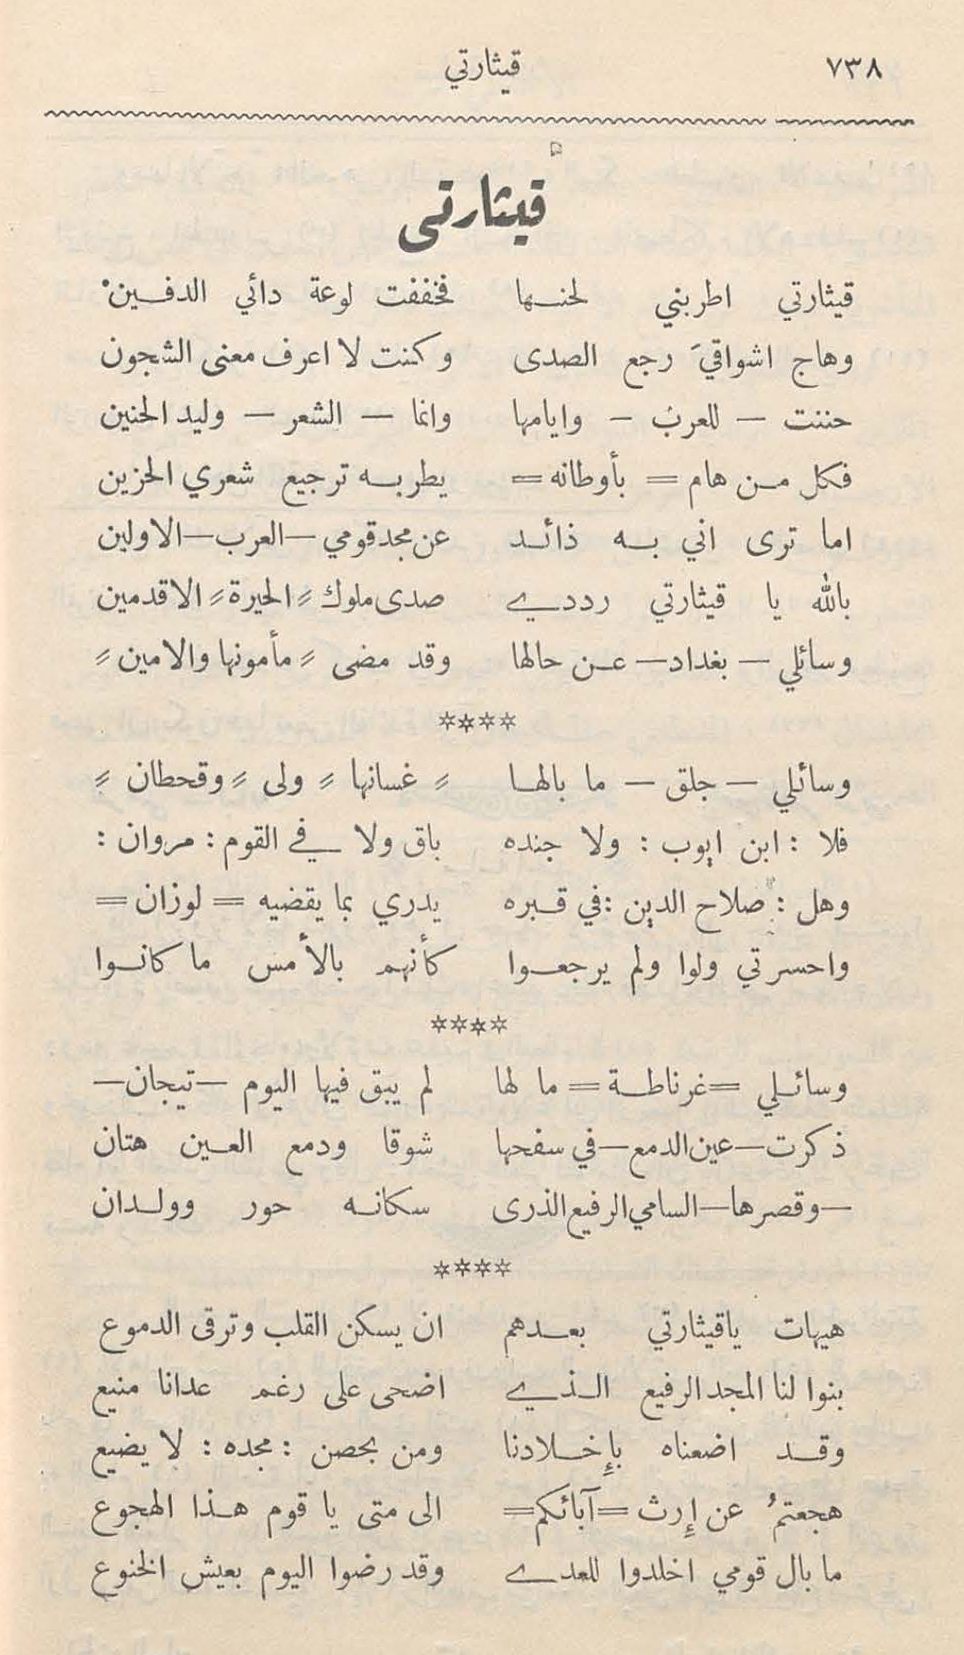 ٧٣٨ قيثارتي
قيثارتي
قيثارتي اطربني لحنها فخففت لوعة دائي الدفين
وهاج اشواقيَ رجع الصدى وكنت لا اعرف معنى الشجون
حننت — للعرب — وايامها وانما — الشعر — وليد الحنين
فكل من هام = بأوطانه = يطربه ترجيع شعري الحزين
اما ترى اني به ذائد عن مجد قومي — العرب — الاولين
بالله يا قيثارتي رددي صدى ملوك = الحيرة = الاقدمين
وسائلي — بغداد — عن حالها وقد مضى = مأمونها والامين =
****
وسائلي — جلق — ما بالها = غسانها = ولى = وقحطان =
فلا : ابن ايوب : ولا جنده باق ولا في القوم : مروان :
وهل : صلاح الدين : في قبره يدري بما يقضيه = لوزان =
واحسرتي ولوا ولم يرجعوا كأنهم بالأمس ما كانوا
****
وسائلي = غرناطة = ما لها لم يبق فيها اليوم — تيجان —
ذكرت — عين الدمع — في سفحها شوقا ودمع العين هتان
— وقصرها — السامي الرفيع الذرى سكانه حور وولدان
****
هيهات ياقيثارتي بعدهم ان يسكن القلب وترقى الدموع
بنوا لنا المجد الرفيع الذي اضحى على رغم عدانا منيع
وقد اضعناه بإخلادنا ومن بحصن : مجده : لا يضيع
هجعتمُ عن إرث = آبائكم = الى متى يا قوم هذا الهجوع
ما بال قومي اخلدوا للعدى وقد رضوا اليوم بعيش الخنوع